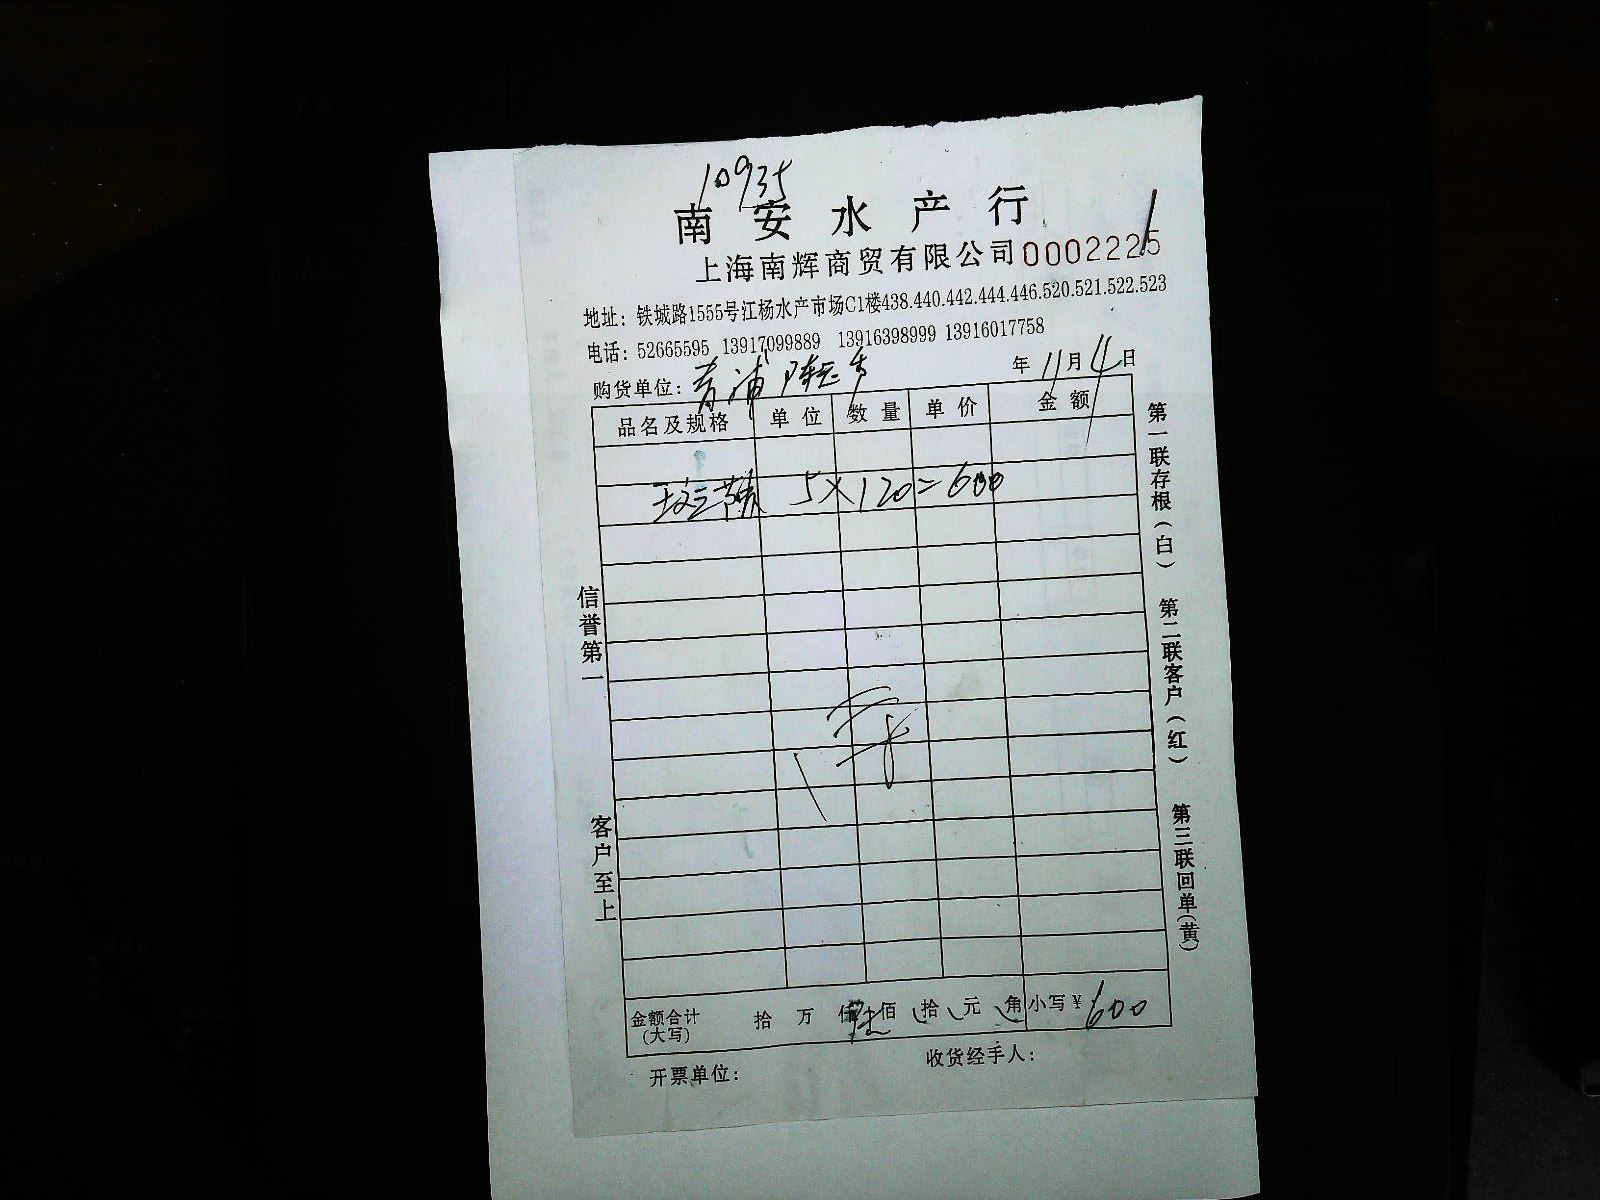 10935
南安水产行
上海南辉商贸有限公司 0002225
地址：铁城路1555号江杨水产市场C1楼438.440.442.444.446.520.521.522.523
电话：52665595 13917099889 13916398999 13916017758
购货单位：青浦 年 11月4日
品名及规格 单位 数量 单价 金额
5×120=600
信誉第一
客户至上
第一联存根(白)
第二联客户(红)
第三联回单(黄)
金额合计 拾 万 仟 陆佰 拾 元 角 小写￥600
(大写)
开票单位： 收货经手人：